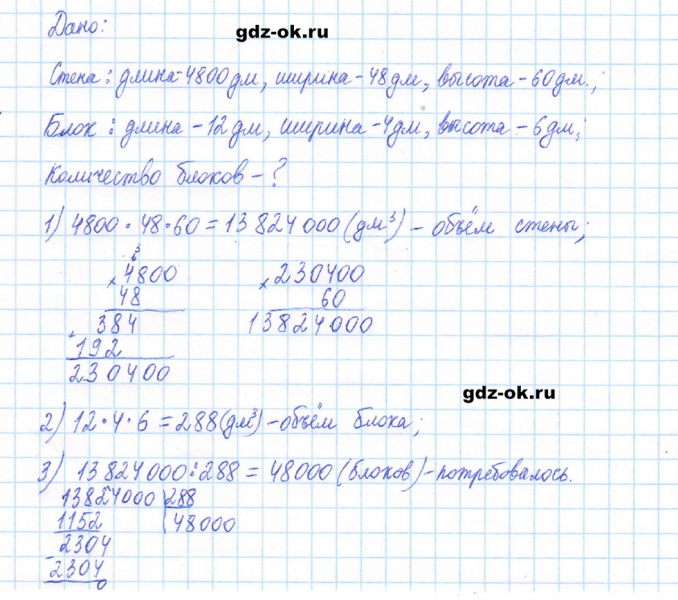 Дано:
gdz-ok.ru
Стена: длина-4800дм, ширина-48дм, высота-60дм.;
Блок: длина-12дм, ширина-4дм, высота-6дм;
Количество блоков-?
1) 4800·48·60=13824000(дм³)-объём стены;
6 3
×4800 ×230400
48 60
384 13824000
+
192
230400
gdz-ok.ru
2) 12·4·6=288(дм³)-объём блока;
3) 13824000:288=48000(блоков)-потребовалось.
13824000 288
1152 48000
2304
-
2304
0